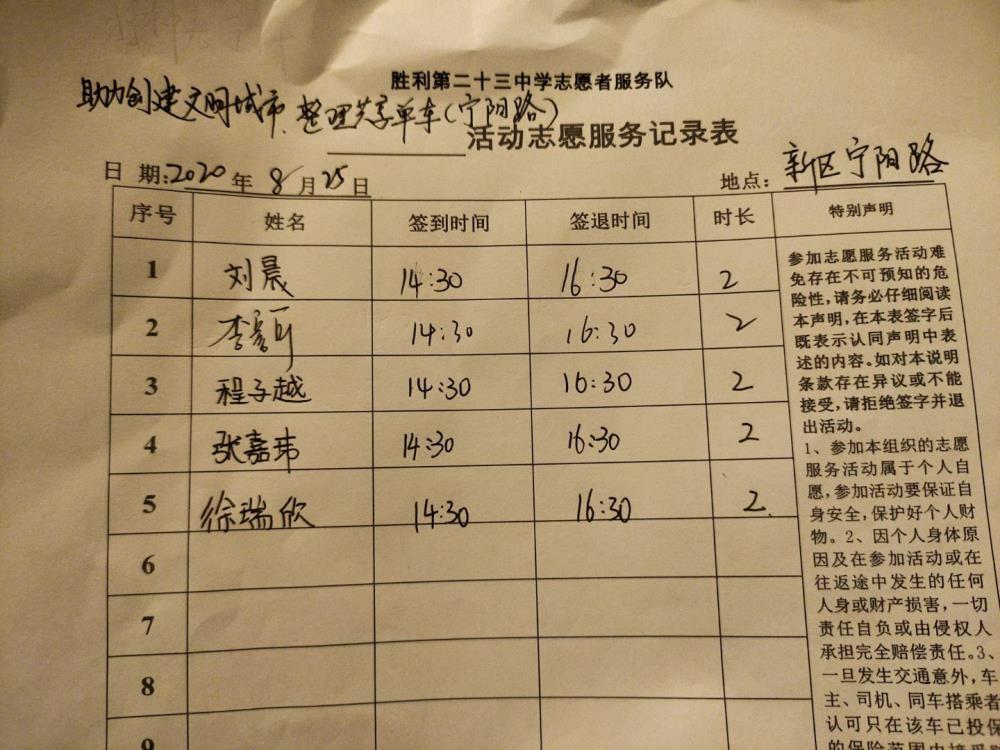 胜利第二十三中学志愿者服务队
助力创建文明城市、整理共享单车(宁阳路)
活动志愿服务记录表
日 期:2020年8月25日 地点:新区宁阳路
序号 姓名 签到时间 签退时间 时长 特别声明
1 刘晨 14:30 16:30 2
2 李 14:30 16:30 2
3 程子越 14:30 16:30 2
4 张嘉玮 14:30 16:30 2
5 徐瑞欣 14:30 16:30 2.
6
7
8
9
参加志愿服务活动难
免存在不可预知的危
险性,请务必仔细阅读
本声明,在本表签字后
既表示认同声明中表
述的内容。如对本说明
条款存在异议或不能
接受,请拒绝签字并退
出活动。
1、参加本组织的志愿
服务活动属于个人自
愿,参加活动要保证自
身安全,保护好个人财
物。2、因个人身体原
因及在参加活动或在
往返途中发生的任何
人身或财产损害,一切
责任自负或由侵权人
承担完全赔偿责任。3、
一旦发生交通意外,车
主、司机、同车搭乘者
认可只在该车已投保
的保险范围内接受